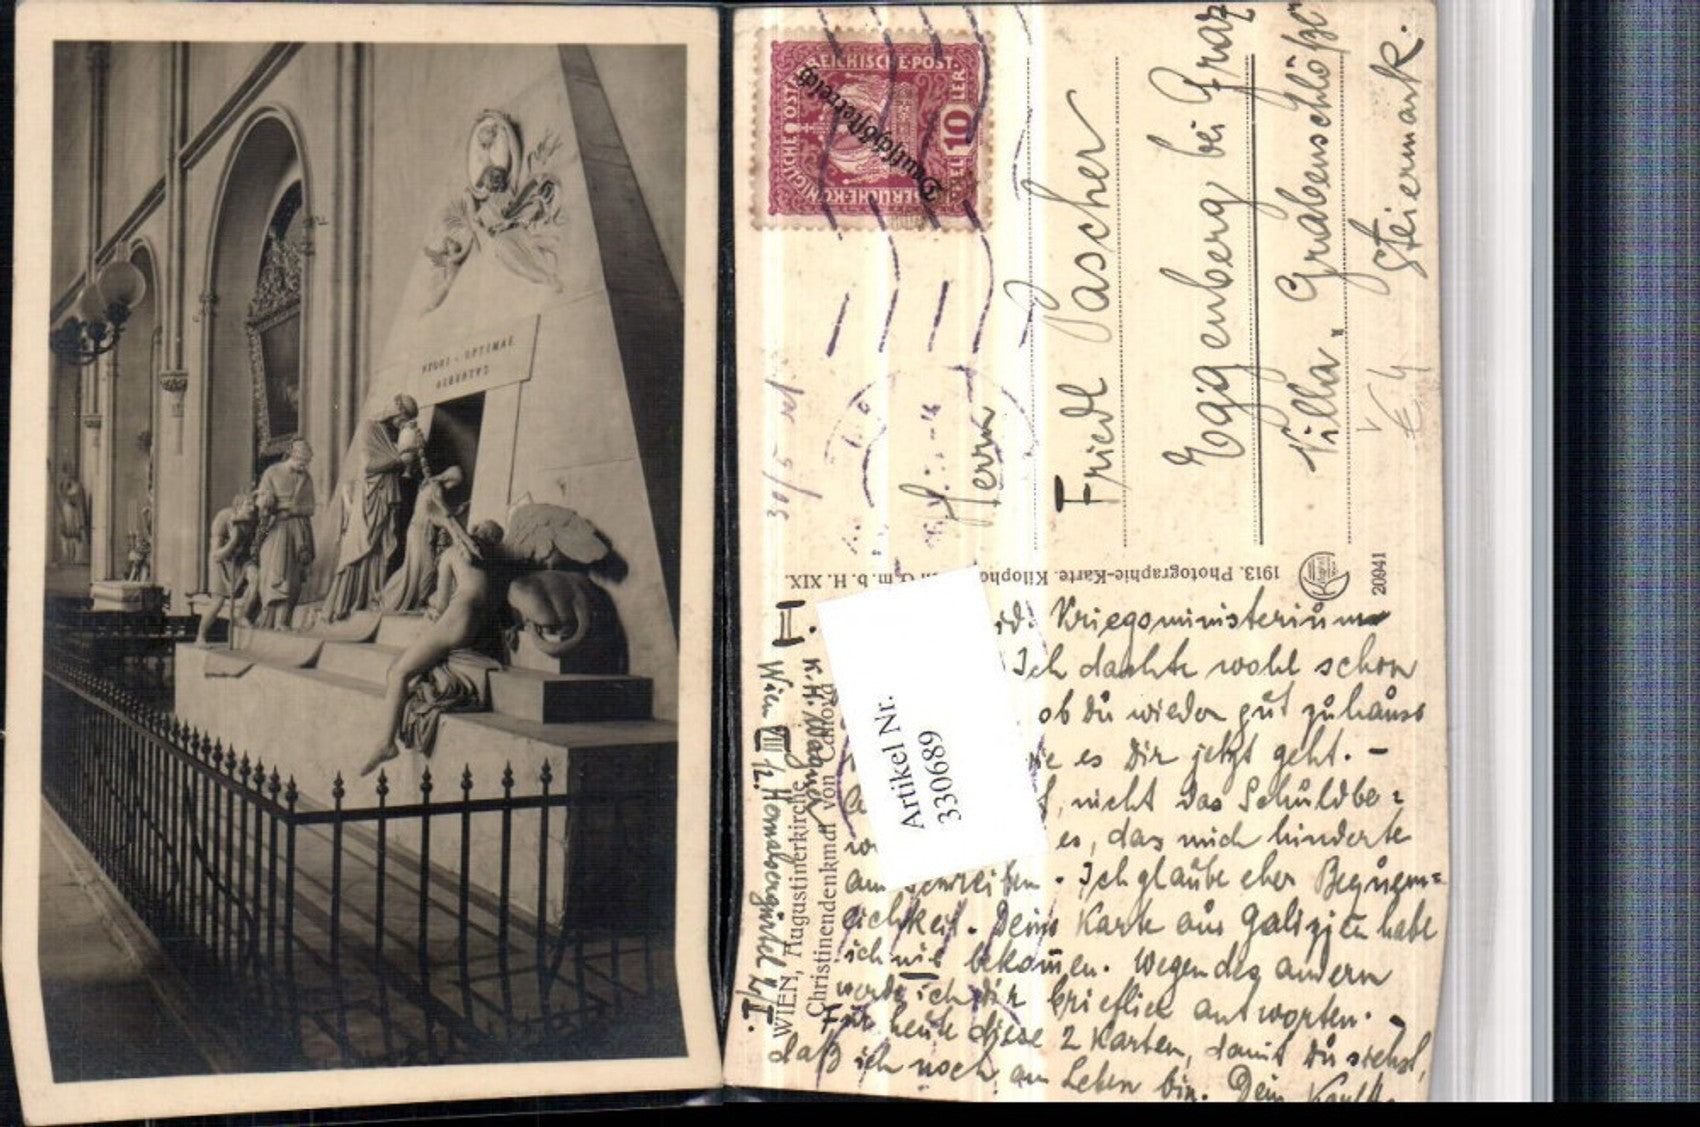 UXORI · OPTIMAE
ALBERTVS
KAISERLICHE·KÖNIGLICHE ÖSTERREICHISCHE·POST·
10
Deutschösterreich
Herrn
Friedl Pascher
Eggenberg bei Graz
Villa „ Grabenschlößl
Steiermark.
1913. Photographie-Karte. Kilopho m. b. H. XIX.
20941
WIEN, Augustinerkirche
Christinendenkmal von Canova
K. H. Wagner
Wien VIII/2. Hernalsergürtel
Artikel Nr.
3306689
Kriegsministerium
Ich dachte wohl schon
ob Du wieder gut zuhause
es Dir jetzt geht. –
nicht das Schuldbe=
es, das mich hinderte
am Schreiben. Ich glaube eher Bequem=
lichkeit. Deine Karte aus Galizien habe
ich nie bekommen. Wegen des andern
werde ich Dir brieflich antworten. –
Für heute diese 2 Karten, damit Du siehst,
daß ich noch am Leben bin. Dein